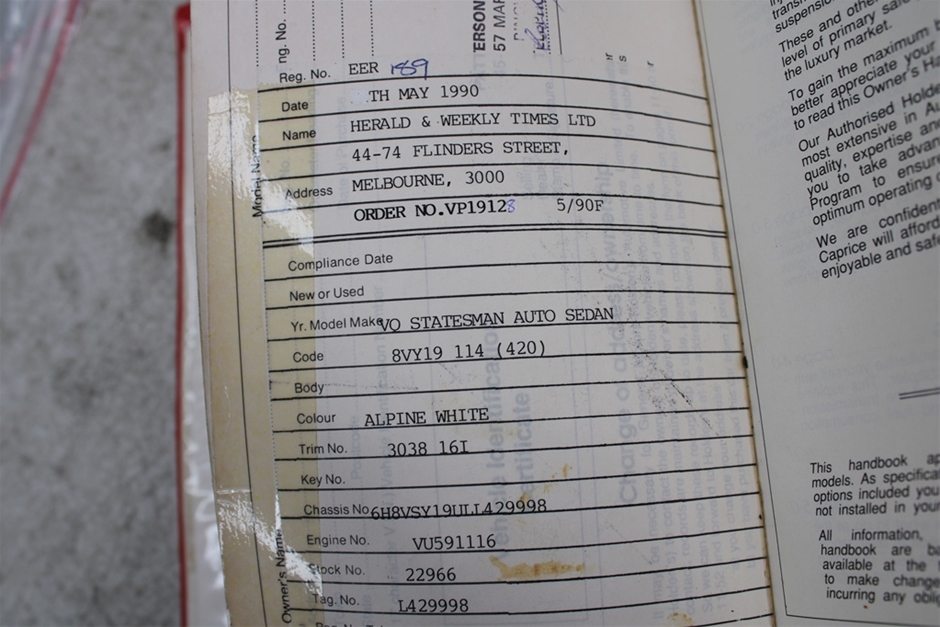 ng. No.
TERSON
57 MAR
Reg. No. EER 189
Date TH MAY 1990
Name HERALD & WEEKLY TIMES LTD
44-74 FLINDERS STREET,
Address MELBOURNE, 3000
ORDER NO.VP19128 5/90F
Compliance Date
New or Used
Yr. Model Make VQ STATESMAN AUTO SEDAN
Code 8VY19 114 (420)
Body
Colour ALPINE WHITE
Trim No. 3038 16I
Key No.
Chassis No. 6H8VSY19ULL429998
Engine No. VU591116
Stock No. 22966
Tag. No. L429998
Model Name
Owner's Name
suspension
These and othe
level of primary safe
the luxury market.
To gain the maximum b
better appreciate your
to read this Owner's Ha
Our Authorised Holde
most extensive in Au
quality, expertise and
you to take advan
Program to ensure
optimum operating c
We are confident
Caprice will afford
enjoyable and safe
This handbook ap
models. As specifica
options included you
not installed in your
All information,
handbook are ba
available at the t
to make change
incurring any oblig